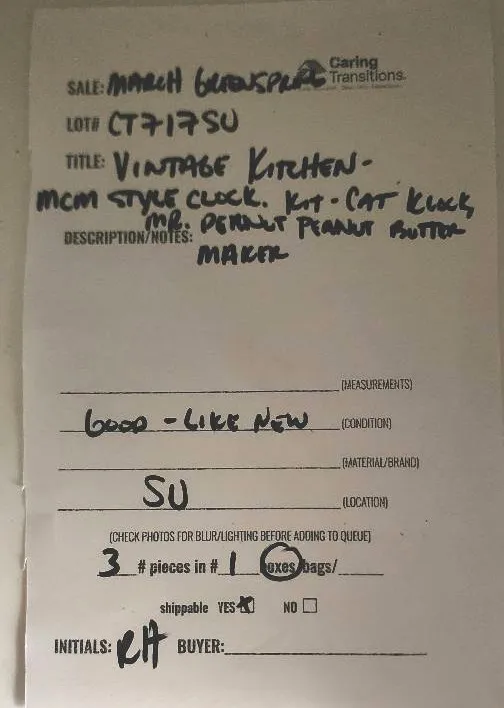 Caring
Transitions.
SALE: MARCH GREENSPRING
LOT# CT717SU
TITLE: VINTAGE KITCHEN-
MCM STYLE CLOCK. KIT-CAT KLOCK,
MR. PEANUT PEANUT BUTTER
DESCRIPTION/NOTES:
MAKER
(MEASUREMENTS)
GOOD - LIKE NEW (CONDITION)
(MATERIAL/BRAND)
SU (LOCATION)
(CHECK PHOTOS FOR BLUR/LIGHTING BEFORE ADDING TO QUEUE)
3 # pieces in # 1 boxes/bags/
shippable YES NO
INITIALS: RH BUYER: